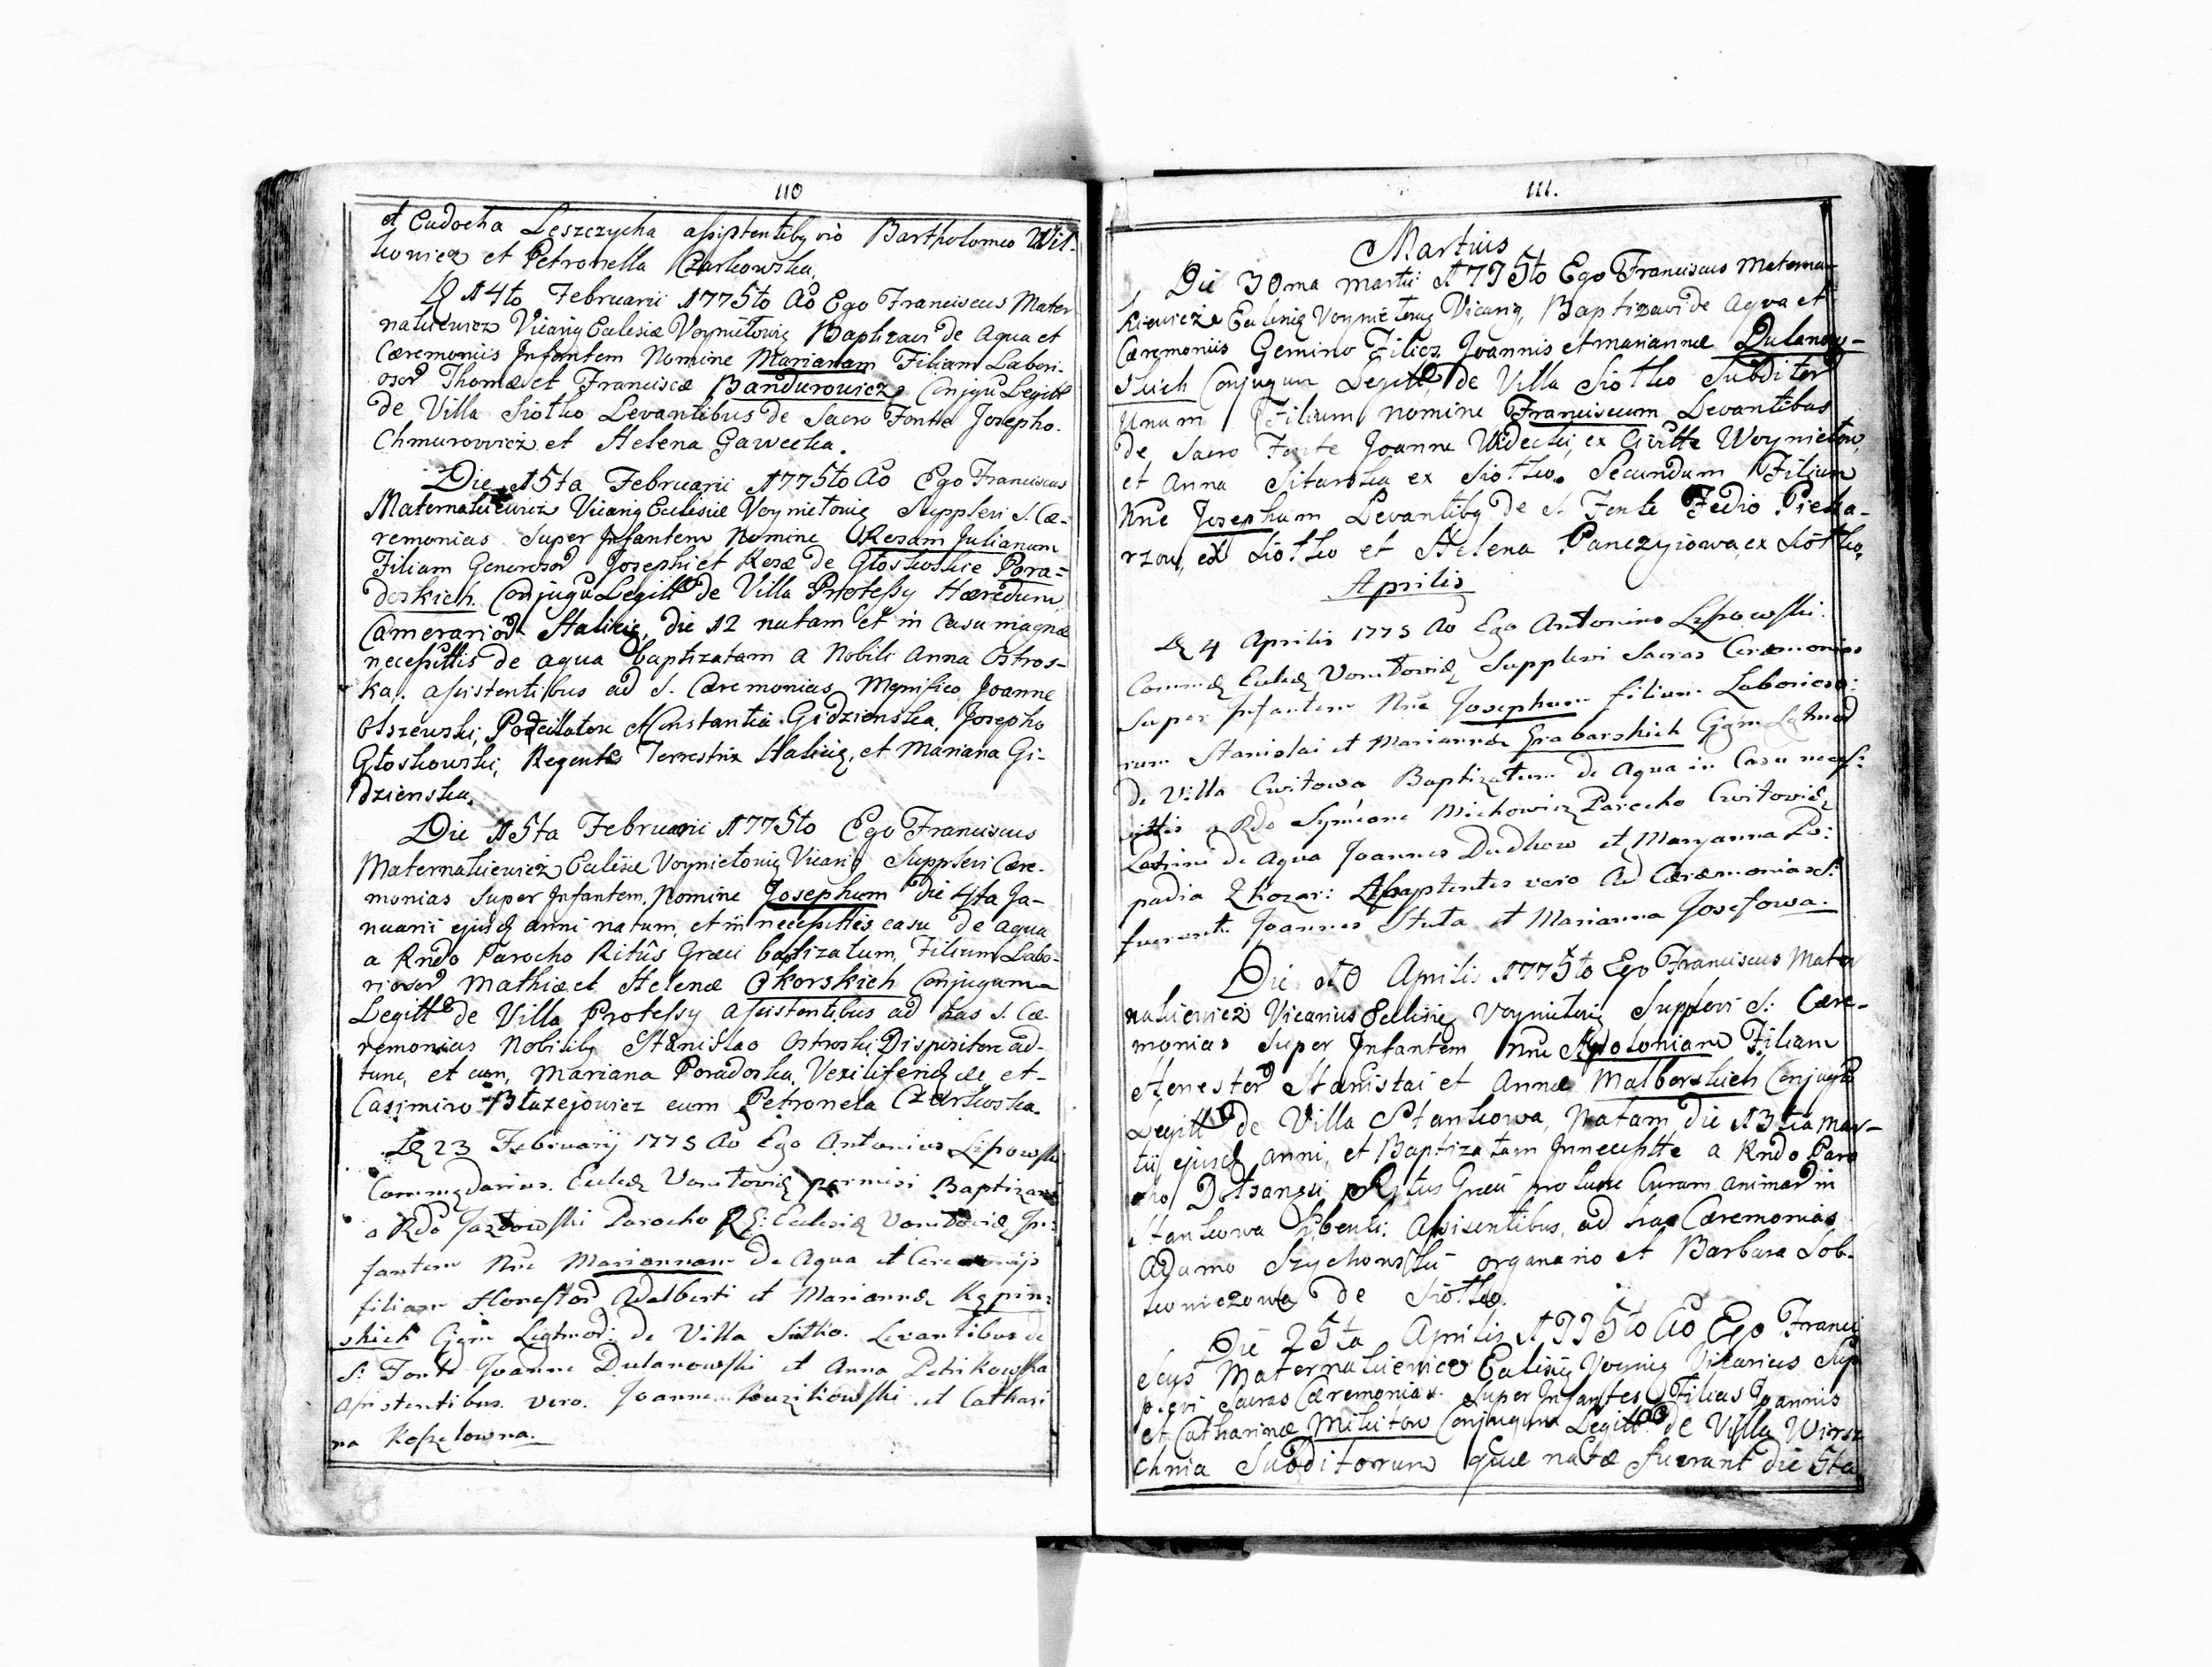 110
et Eudocha Leszczycha assistentibq vo Bartholomeo Wit-
kowicz et Petronella Czarkowska.
D 14to Februarii 1775to Ao Ego Franciscus Mater
nakiewicz Vicariq Eclesiæ Voyniloviq Baptizavi de Aqua et
Cæremoniis Infantem Nomine Mariannam Filiam Labori-
osor Thomæ et Franciscæ Bandurowicz Conjgu Legitt
de Villa Siołko Levantibus de Sacro Fonte Josepho.
Chmurowicz et Helena Gawecka.
Die 15ta Februarii 1775to Ao Ego Franciscus
Maternakiewicz Vicariq Eclisiæ Voyniłoviq Supplevi S. Cæ-
remonias Super Infantem Nomine Rosam Julianam
Filiam Generosor Josephi et Rosæ de Głoskoskie Pora-
doskich Conjugu Legitt de Villa Protessy Hæredum
Camerarior Halicię, die 12 natam et in Casu magnæ
necessittis de aqua baptizatam a Nobili Anna Ostros-
ka. assistentibus ad S. Cæremonias Mgnifico Joanne
Olszewski, Pocillatore et Constantia Gidzienska, Josepho
Głoskowski, Regente Terrestris Halicię, et Mariana Gi-
dzienska.
Die 15ta Februarii 1775to Ego Franciscus
Maternakiewicz Eclisiæ Voyniłoviq Vicariq Supplevi Cære-
monias Super Infantem Nomine Josephum Die 4ta Ja-
nuarii ejusd anni natum, et in necessittis casu de aqua
a Rndo Parocho Ritûs Græci baptizatum, Filium Labo-
riosor Mathiæ et Helenæ Okorskich Conjugum
Legitt de Villa Protessy assistentibus ad has S. Cæ-
remonias Nobilibq Stanislao Ostroski Dispositore ad-
tunc, et cum, Mariana Poradoska Vexiliferid
Casimiro Błazejowicz cum Petronela Czarkoska.
D 23 Februarij 1775 Ao Ego Antonius Lipowski
Commędarius Eccleæ Voniłoviæ permisi Baptizare
a Rdo Jazłowski Parocho R G: Eclesiæ Voniłoviæ In-
fantem Nne Mariannam de Aqua et Ceremonijs
filiam Honestor Adalberti et Mariannæ Kępin-
skich Cgum Legtmor: de Villa Siłko. Levantibus de
S: Fonte Joanne Dulanowski et Anna Petrikowska
Assistentibus vero. Joanne Kouzikowski et Cathari
na Koszełowna.
111.
Martius
Die 30ma Martii 1775to Ego Franciscus Materna-
kiewicz Eclisiæ Voyniłoviq Vicariq, Baptizavi de Aqua et
Cæremoniis Gemino Filios Joannis et Mariannæ Dulanow-
skich Conjugum Legitt de Villa Siołko Subditor
Unum Filium nomine Franciscum Levantibus
de Sacro Fonte Joanne Widecki, ex Civitte Woyniłow
et Anna Sitarska ex Siołko. Secundum Filium
Nne Josephum Levantibq de S. Fonte Fedio Pieka-
rzow, ex Siołko et Helena Panczyiowa ex Siołko.
Aprilis
D 4 Aprilis 1775 Ao Ego Antonius Lipowski
Commæ Eccleæ Voniłoviæ Supplevi Sacras Cæremonias
Super Infantem Nne Josephum filium Laborioso:
rum Stanislai et Mariannæ Grabarskich Cgum Legtmor
de Villa Cwitowa Baptizatum de Aqua in Casu necess:
sittis a Rdo Symeone Michowicz Parocho Cwitoviæ
Levantes de Aqua Joannes Dudkow et Maryanna Po:
padia Assistentes vero ad Cæremonias S:
fuerunt Joannes Stuta et Marianna Josefowa.
Die 10 Aprilis 1775to Ego Franciscus Mater
nakiewicz Vicarius Eclisię Voyniłovię Supplevi S: Cære-
monias Super Infantem Nne Apoloniam Filiam
Honestor Stanislai et Annæ Malborskich Conjugu
Legitt de Villa Stankowa, Natam die 13tia Mar-
tii ejusd anni, et Baptizatam In necessitte a Rndo Paro
cho Dolzanski Rytus Græci pro tunc Curam animar in
Stankowa habenti. Assisentibus, ad has Cæremonias
Adamo Szychowski organario et Barbara Sob-
kowiczowa de Siołko.
Die 25ta Aprilis 1775to Ao Ego Franci
scus Maternakiewicz Eclisię Voynię Vicarius Sup
plevi Sacras Cæremonias Super Infantes Filias Joannis
et Catharinæ Mikitow Conjugum Legitt de Villa Wirsz
chnia Subditorum quæ natæ fuerant die 5ta